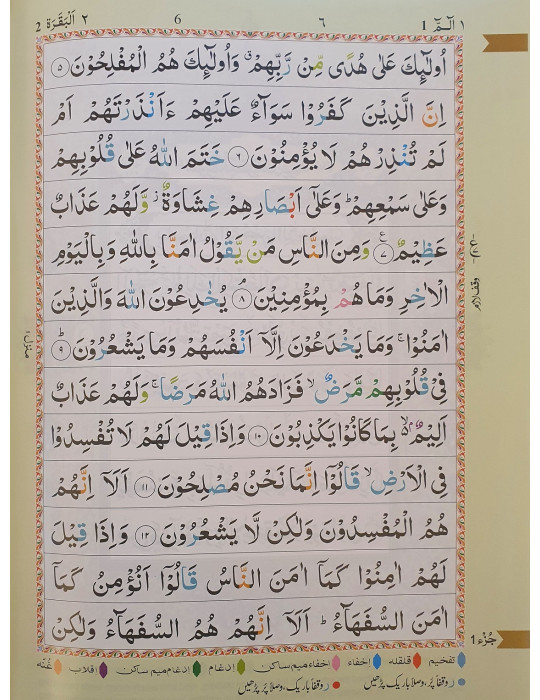 ١ الٓمّٓ 1 ٦ 6 ٢ اَلْبَقَرَة 2
اُولٰٓئِكَ عَلٰى هُدًى مِّنْ رَّبِّهِمْ ۙ وَاُولٰٓئِكَ هُمُ الْمُفْلِحُوْنَ ۝٥
اِنَّ الَّذِيْنَ كَفَرُوْا سَوَآءٌ عَلَيْهِمْ ءَاَنْذَرْتَهُمْ اَمْ
لَمْ تُنْذِرْهُمْ لَا يُؤْمِنُوْنَ ۝٦ خَتَمَ اللّٰهُ عَلٰى قُلُوْبِهِمْ
وَعَلٰى سَمْعِهِمْ ؕ وَعَلٰٓى اَبْصَارِهِمْ غِشَاوَةٌ ۫ وَّلَهُمْ عَذَابٌ
عَظِيْمٌ ۝٧ۧ وَمِنَ النَّاسِ مَنْ يَّقُوْلُ اٰمَنَّا بِاللّٰهِ وَبِالْيَوْمِ
الْاٰخِرِ وَمَا هُمْ بِمُؤْمِنِيْنَ ۝٨ۘ يُخٰدِعُوْنَ اللّٰهَ وَالَّذِيْنَ
وقف لازم
اٰمَنُوْا ۚ وَمَا يَخْدَعُوْنَ اِلَّآ اَنْفُسَهُمْ وَمَا يَشْعُرُوْنَ ۝٩ؕ
منزل ١
فِيْ قُلُوْبِهِمْ مَّرَضٌ ۙ فَزَادَهُمُ اللّٰهُ مَرَضًا ۚ وَلَهُمْ عَذَابٌ
اَلِيْمٌ ۙ۬ بِمَا كَانُوْا يَكْذِبُوْنَ ۝١٠ وَاِذَا قِيْلَ لَهُمْ لَا تُفْسِدُوْا
فِي الْاَرْضِ ۙ قَالُوْٓا اِنَّمَا نَحْنُ مُصْلِحُوْنَ ۝١١ اَلَآ اِنَّهُمْ
هُمُ الْمُفْسِدُوْنَ وَلٰكِنْ لَّا يَشْعُرُوْنَ ۝١٢ وَاِذَا قِيْلَ
لَهُمْ اٰمِنُوْا كَمَآ اٰمَنَ النَّاسُ قَالُوْٓا اَنُؤْمِنُ كَمَآ
اٰمَنَ السُّفَهَآءُ ؕ اَلَآ اِنَّهُمْ هُمُ السُّفَهَآءُ وَلٰكِنْ
جُزْء 1
تفخیم قلقله اخفاء اخفاء میم ساکن إدغام إدغام میم ساکن اقلاب غُنّه
ر وقفاً پُر، وصلاً باریک پڑھیں ر وقفاً باریک، وصلاً پُر پڑھیں